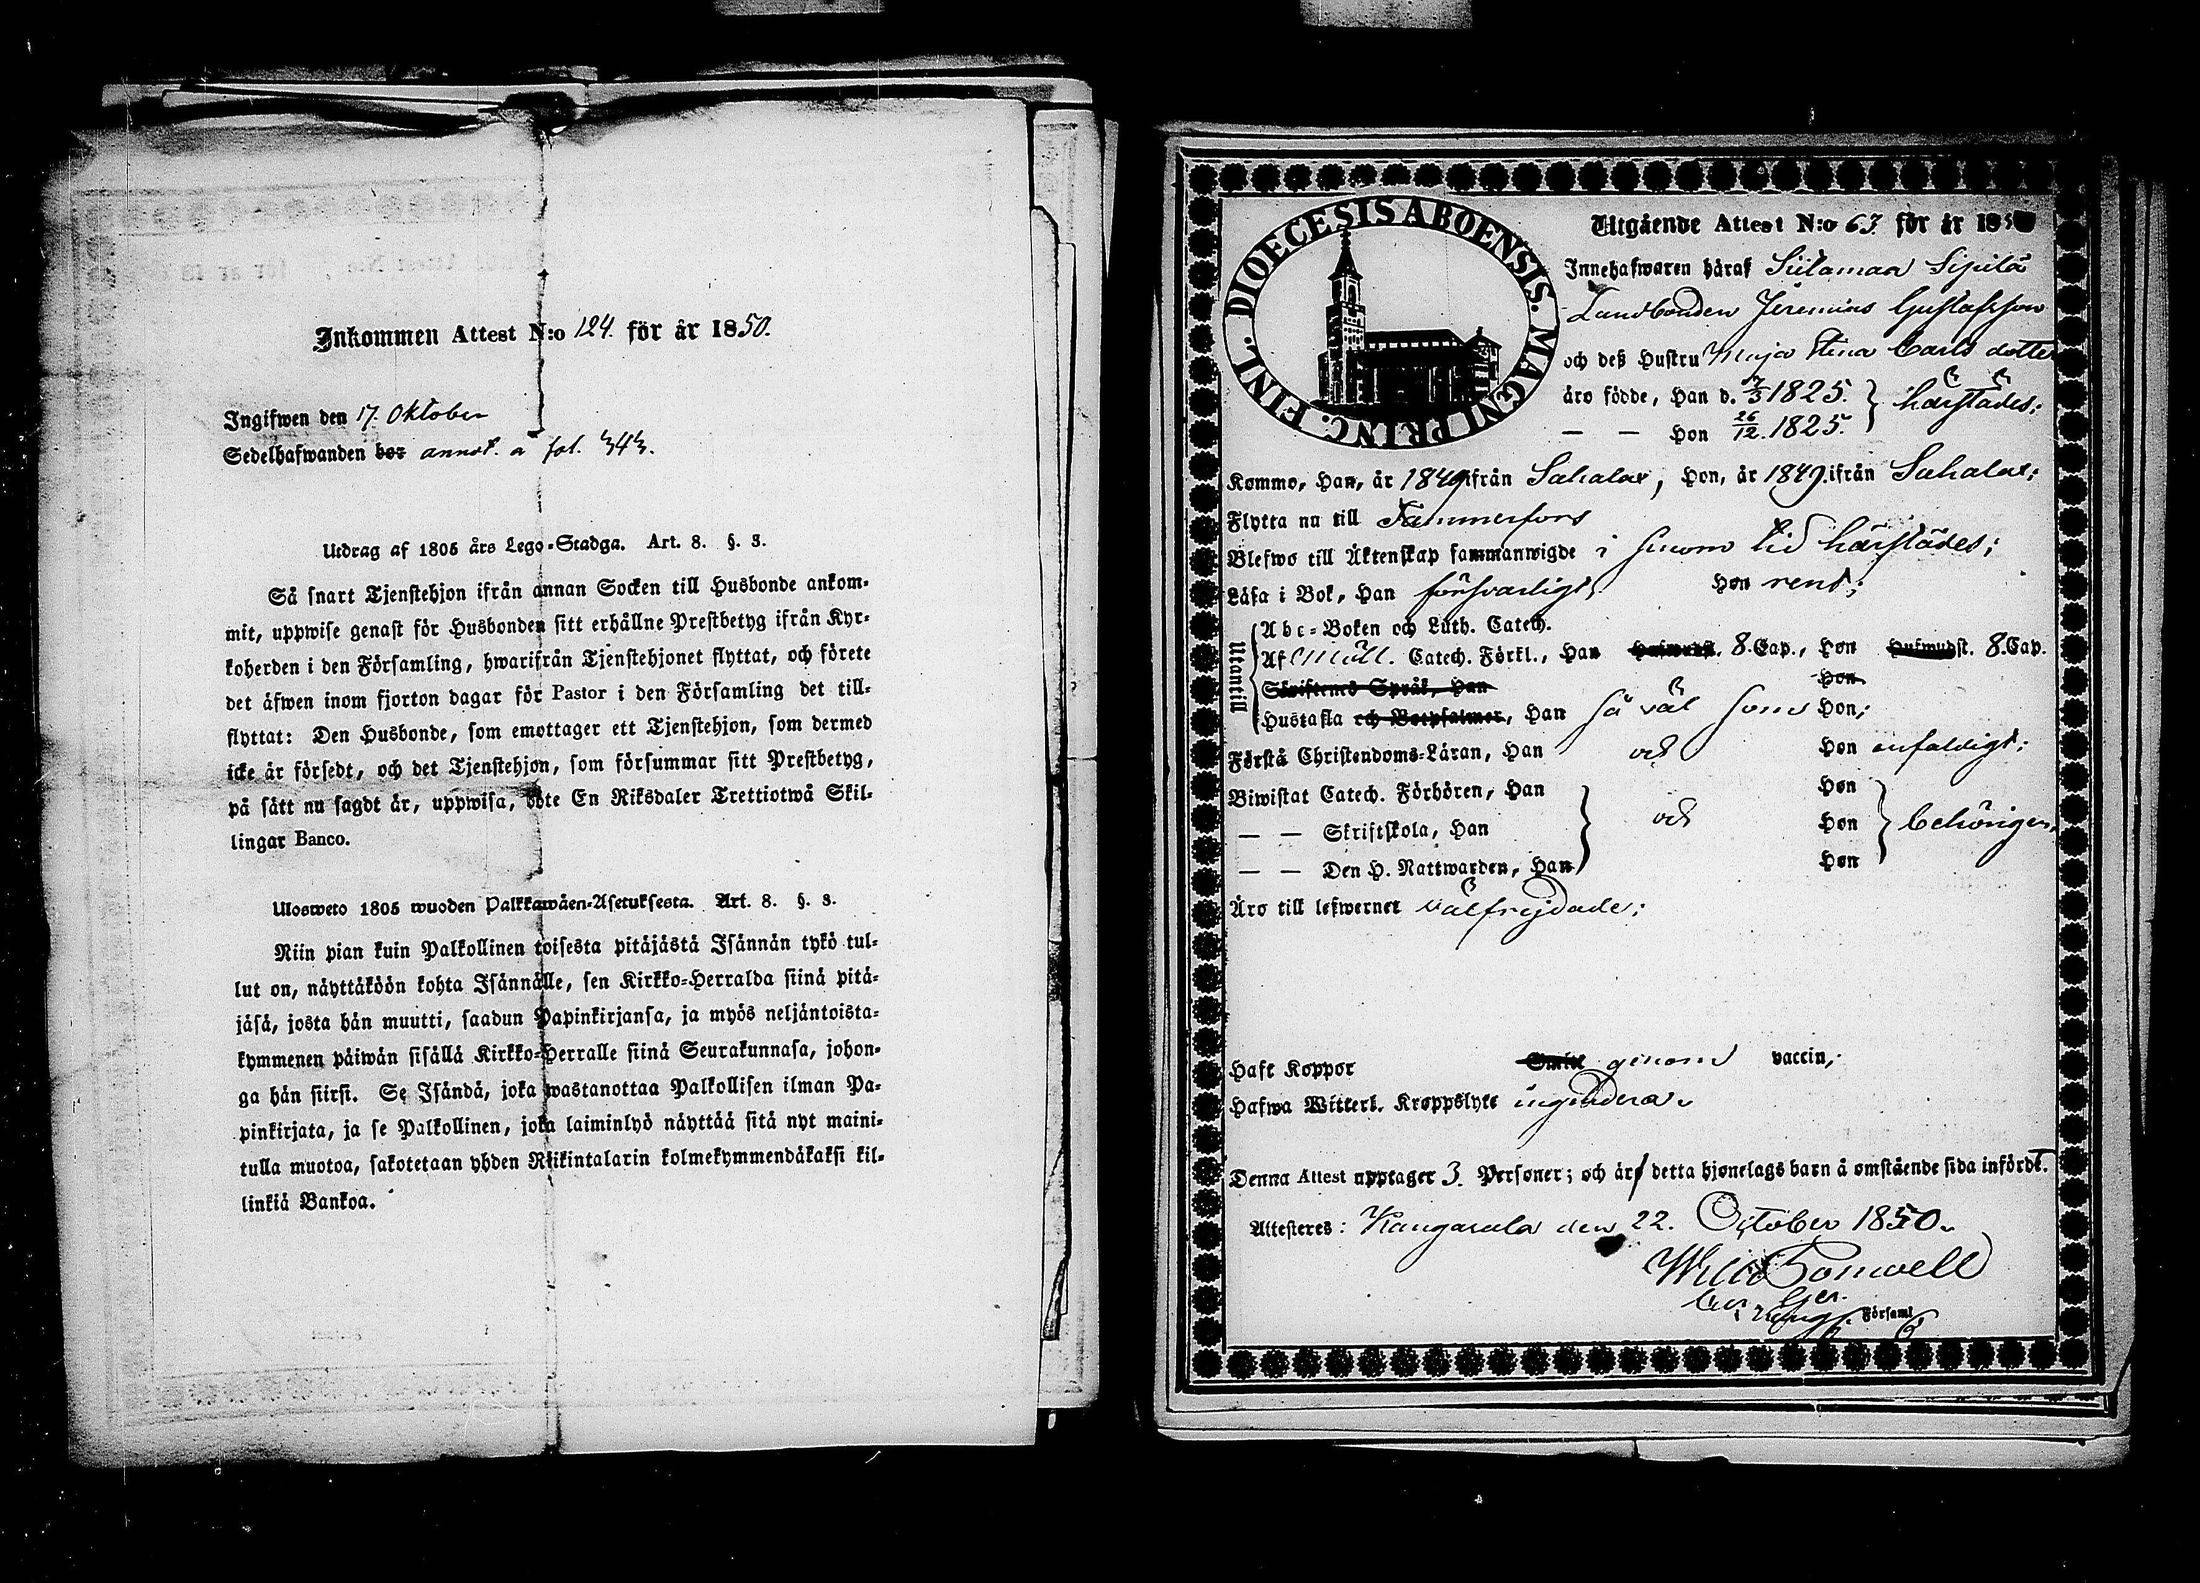 Inkommen Attest N:o 124. för år 1850.
Ingifwen den 17. Oktober
Sedelhafwanden bor annot. å fol. 343.
Utdrag af 1805 års Lego-Stadga. Art. 8. §. 3.
Så snart Tjenstehjon ifrån annan Socken till Husbonde ankom-
mit, uppwise genast för Husbonden sitt erhållne Prestbetyg ifrån Kyr-
koherden i den Församling, hwarifrån Tjenstehjonet flyttat, och förete
det äfwen inom fjorton dagar för Pastor i den Församling det till-
flyttat: Den Husbonde, som emottager ett Tjenstehjon, som dermed
icke är försedt, och det Tjenstehjon, som försummar sitt Prestbetyg,
på sätt nu sagdt är, uppwisa, böte En Riksdaler Trettiotwå Skil-
lingar Banco.
Ulosweto 1805 wuoden Palkkawäen-Asetuksesta. Art. 8. §. 3.
Niin pian kuin Palkollinen toisesta pitäjästä Isännän tykö tul-
lut on, näyttäköön kohta Isännälle, sen Kirkko-Herralda siinä pitä-
jäsä, josta hän muutti, saadun Papinkirjansa, ja myös neljäntoista-
kymmenen päiwän sisällä Kirkko-Herralle siinä Seurakunnasa, johon-
ga hän siirsi. Se Isändä, joka wastanottaa Palkollisen ilman Pa-
pinkirjata, ja se Palkollinen, joka laiminlyö näyttää sitä nyt maini-
tulla muotoa, sakotetaan yhden Riikintalarin kolmekymmendäkaksi kil-
linkiä Bankoa.
DIOECESIS ABOENSIS. MAGNI PRINC. FINL.
Utgående Attest N:o 63. för år 185
Innehafwaren häraf Siitamaa Sipilä
Landbonden Jeremias Gustafsson
och deß Hustru Maja Stina Carls dotter
äro födde, Han d. 1825. } härstädes;
— — Hon 26/12. 1825.
Kommo, Han, år 1849 ifrån Sahalax, Hon, år 1849. ifrån Sahalax;
Flytta nu till Tammerfors
Blefwo till Äktenskap sammanwigde i sinom tid härstädes;
Läsa i Bok, Han försvarligt, Hon rent;
Utantill
Abc-Boken och Luth. Catech.
Af Möll. Catech. Förkl., Han Hufwudst. 8. Cap., Hon Hufwudst. 8. Cap.
Skriftenes Språk, Han Hon
Hustafla och Botpsalmer, Han så väl som Hon;
Förstå Christendoms-Läran, Han och Hon enfaldigt;
Biwistat Catech. Förhören, Han Hon
— — Skriftskola, Han } och Hon } behörigen,
— — Den H. Nattwarden, Han Hon
Äro till lefwernet välfrejdade;
Haft Koppor genom vaccin;
Hafwa Witterl. Kroppslyte ingendera.
Denna Attest upptager 3. Personer; och är detta hjonelags barn å omstående sida infördt.
Attesteres: Kangasala den 22. October 1850.
Wilh Bonwell
i Församl.